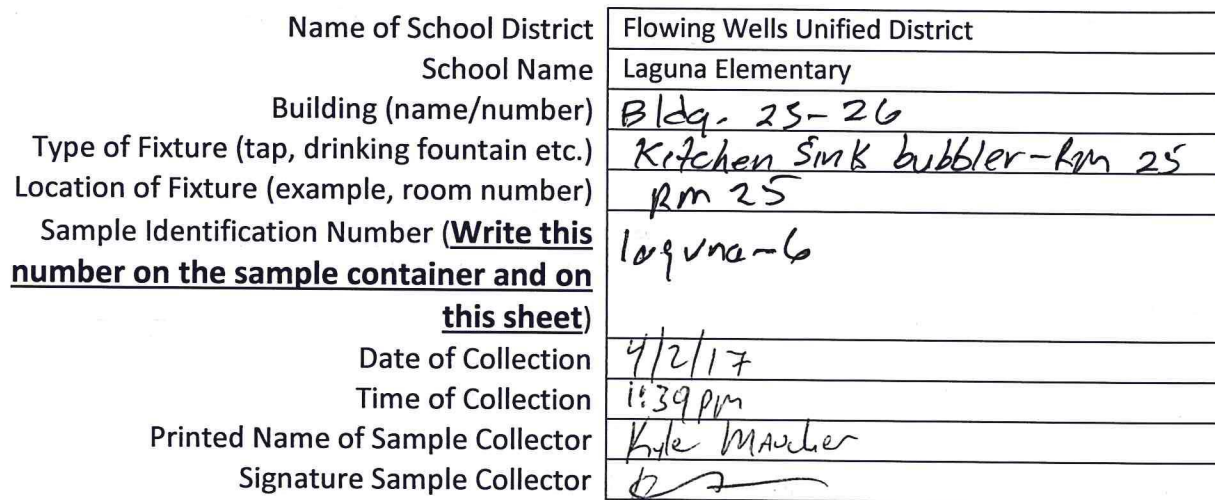 Name of School District Flowing Wells Unified District
School Name Laguna Elementary
Building (name/number) Bldg. 25-26
Type of Fixture (tap, drinking fountain etc.) Kitchen Sink bubbler-Rm 25
Location of Fixture (example, room number) Rm 25
Sample Identification Number (Write this
number on the sample container and on
this sheet)
laguna-6
Date of Collection 4/2/17
Time of Collection 1:39 pm
Printed Name of Sample Collector Kyle
Signature Sample Collector